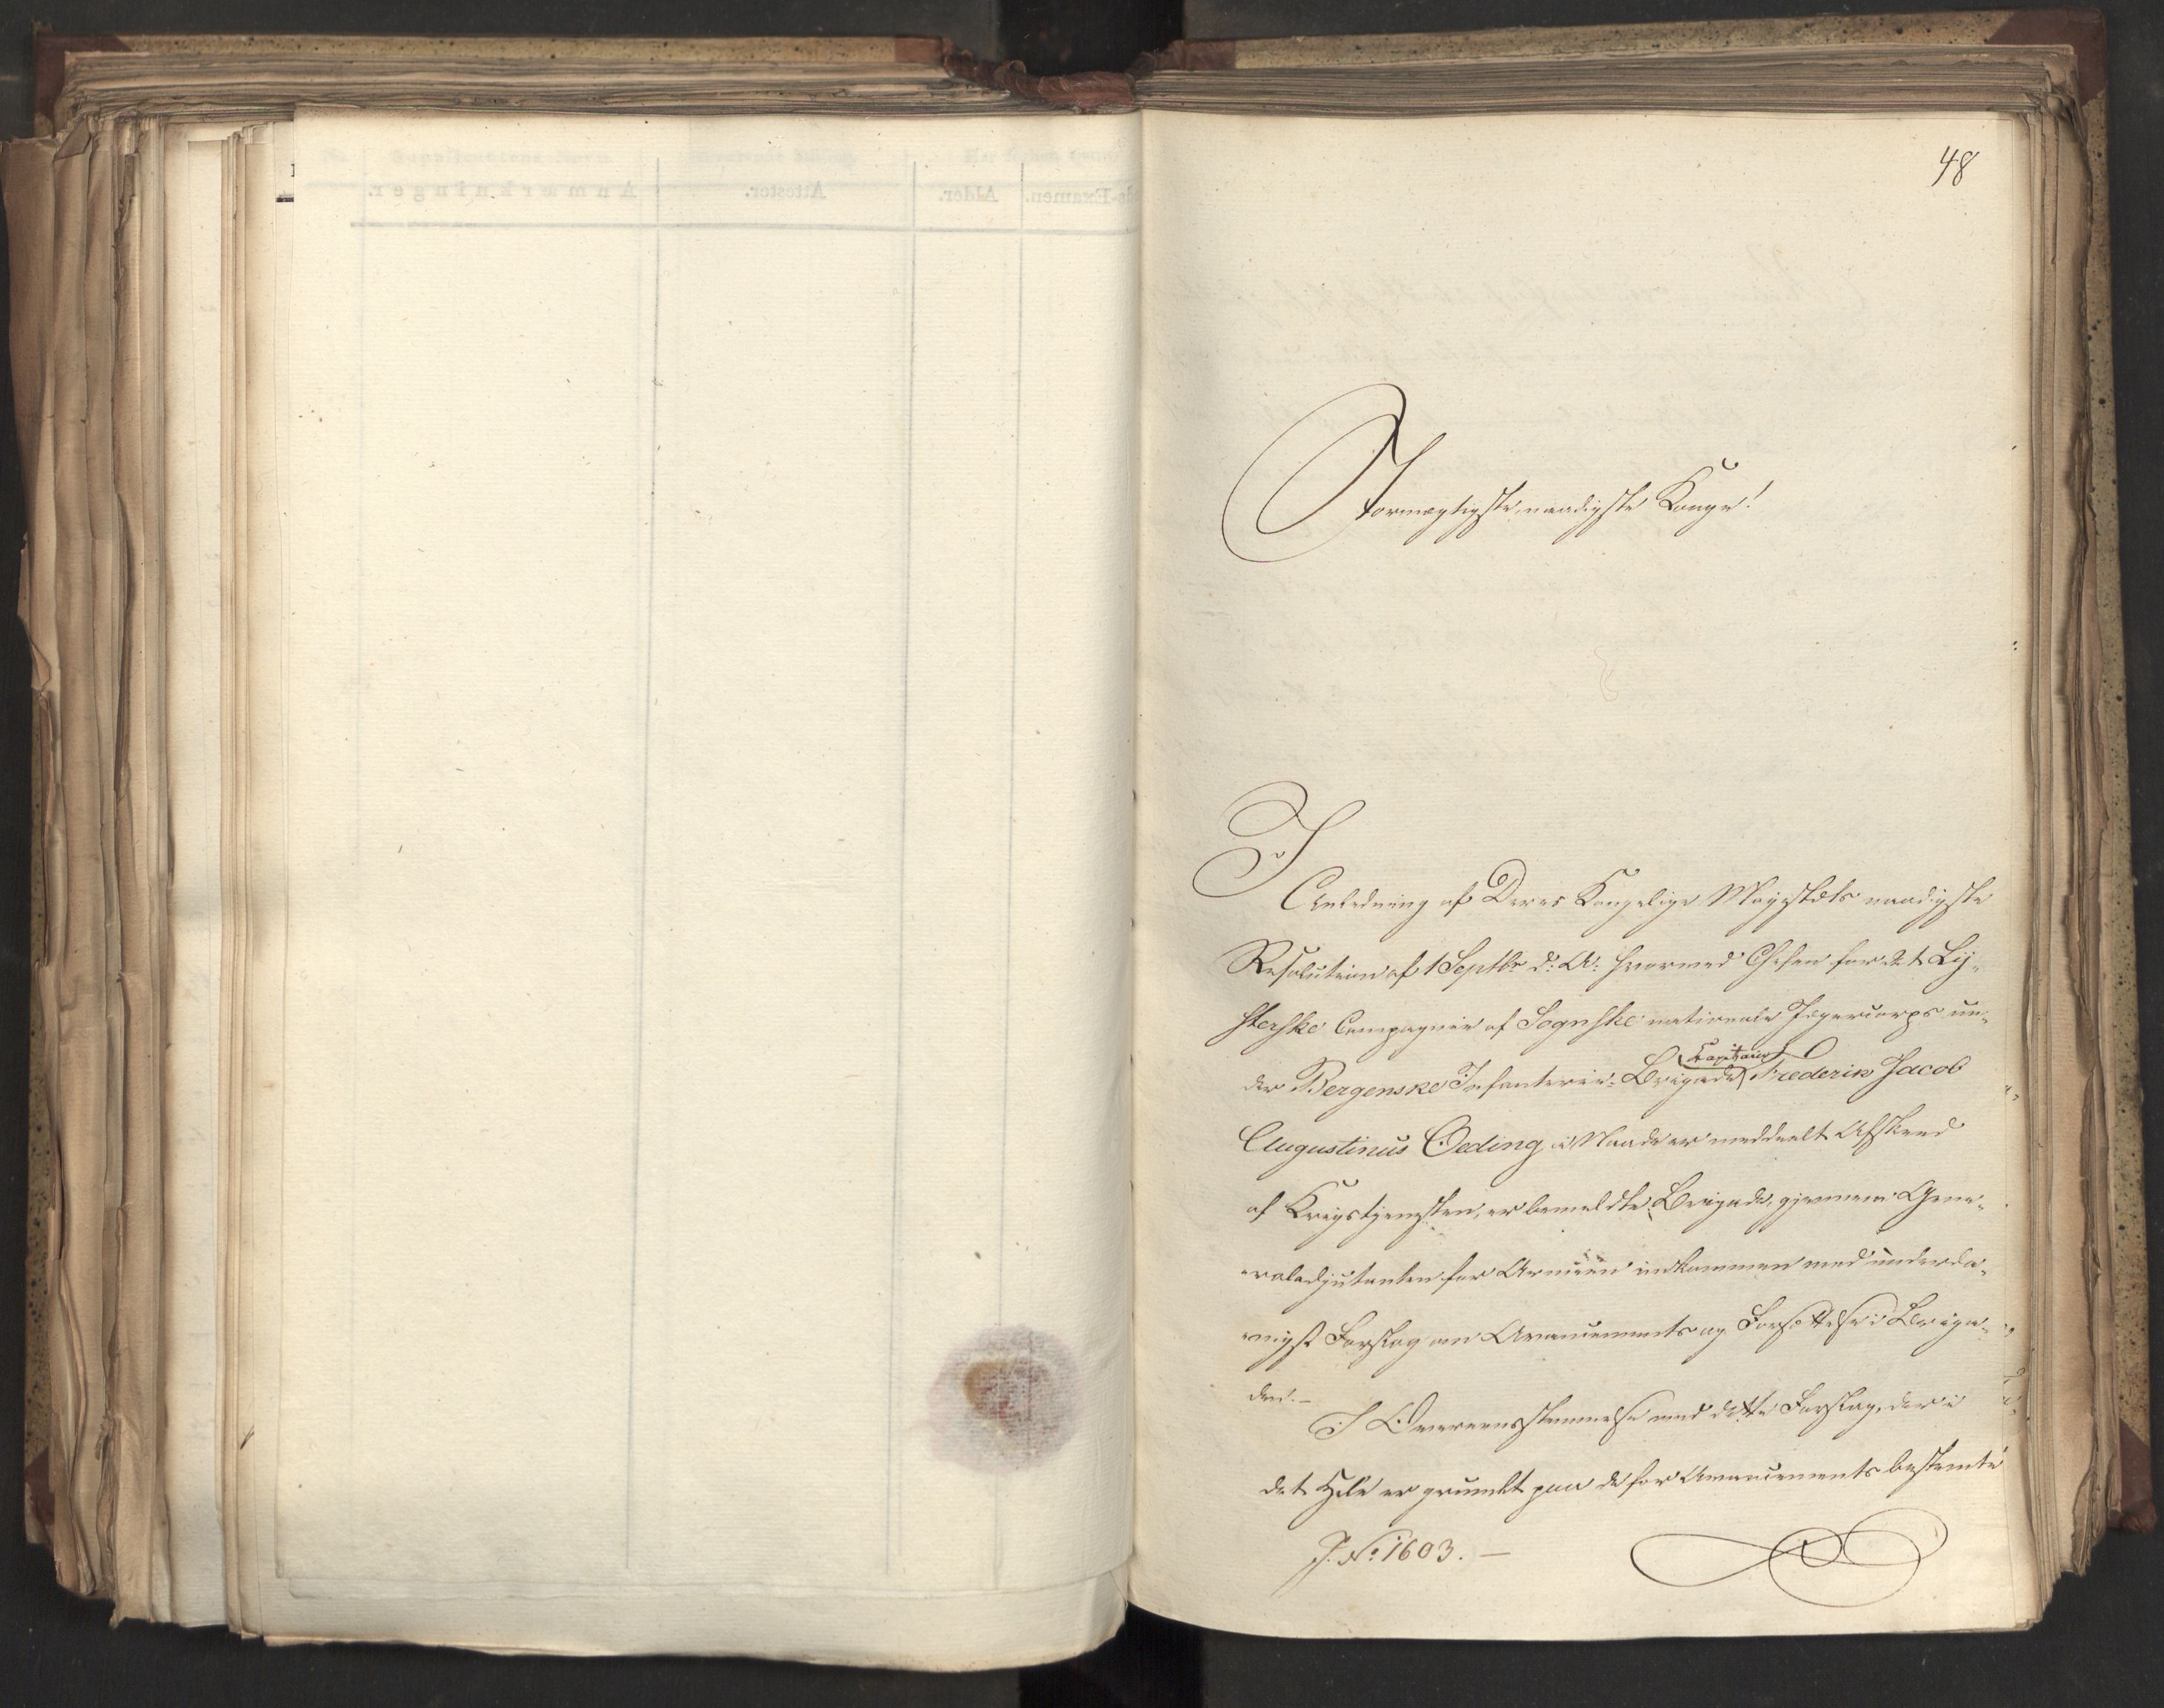 48
Stormægtigste, naadigste Konge!
I
Anledning af Deres Kongelige Majestæts naadigste
Resolution af 1 Septbr d: A: hvorved Chefen for det Ly-
sterske Compagnie af Sognske nationale Jægercorps un-
der Bergenske Infanterie-Brigade Capitaine Frederik Jacob
Augustinus Oeding i Naade er meddeelt Afskeed
af Krigstjenesten, er bemeldte Brigade, gjennem Gene-
raladjutanten for Armeen indkommen med underda-
nigst Forslag om Avancements og Forsættelse i Briga-
den.-
I Overeensstemmelse med dette Forslag, der i
det Hele er grundet paa de for Avancements bestemte
J. No: 1603. -
Anmærkninger.
Attester.
Alder.
ds-Examen.